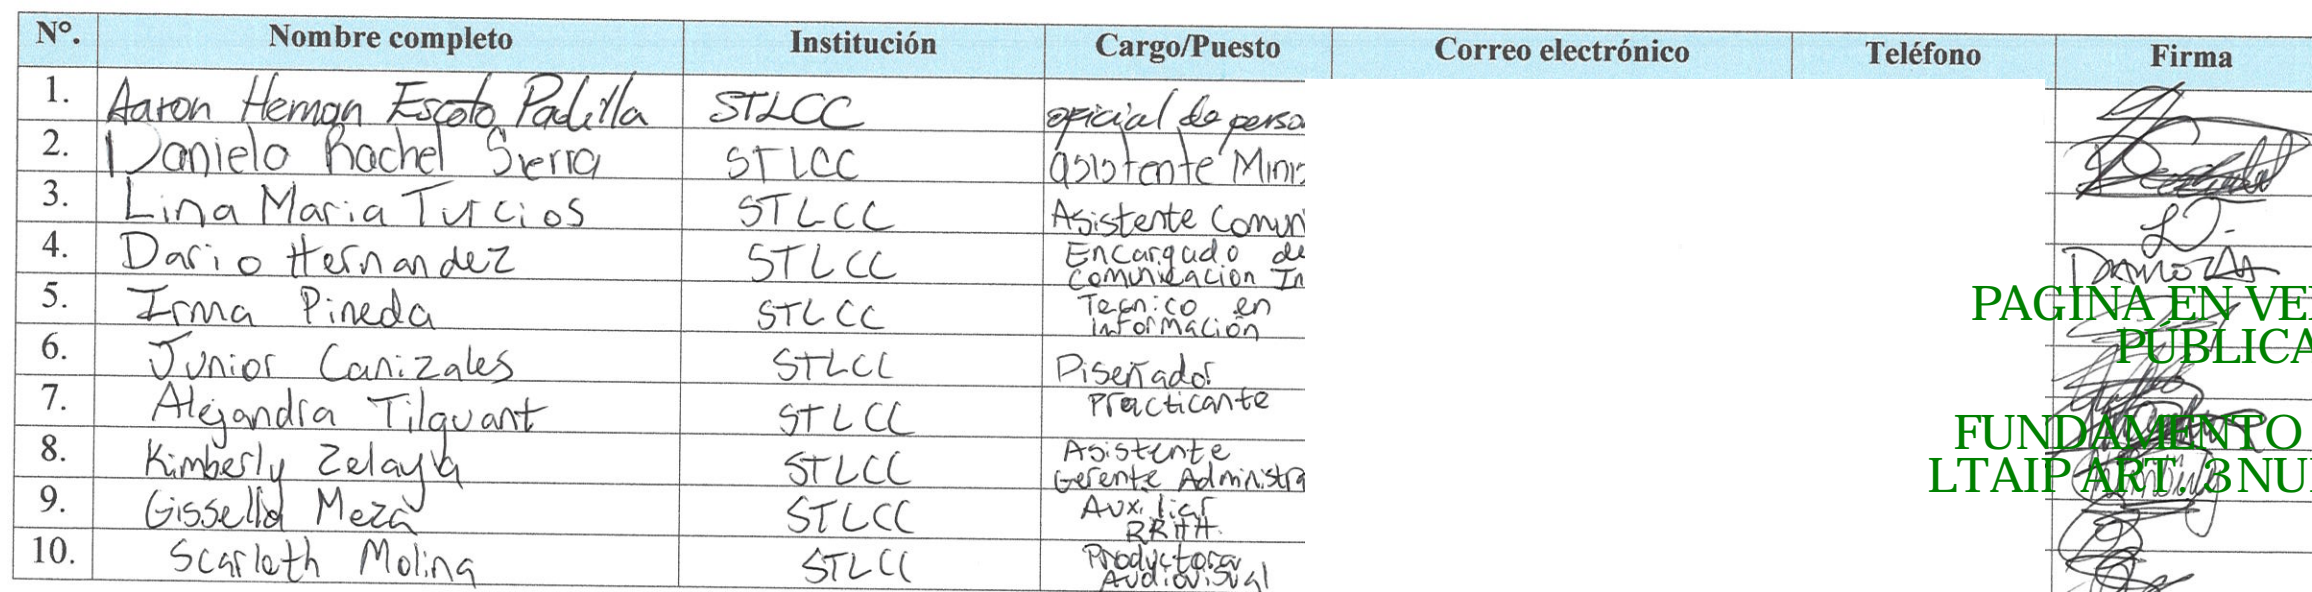 N°. Nombre completo Institución Cargo/Puesto Correo electrónico Teléfono Firma
1. Aaron Hernan Escoto Padilla STLCC oficial de perso
2. Daniela Rachel Sierra STLCC asistente Minis
3. Lina Maria Turcios STLCC Asistente Comuni
4. Dario Hernandez STLCC Encargado de
comunicacion In
5. Irma Pineda STLCC Tecnico en
Información
6. Junior Canizales STLCC Diseñador
7. Alejandra Tilguant STLCC Practicante
8. Kimberly Zelaya STLCC Asistente
Gerente Administra
9. Gissella Meza STLCC Auxiliar
RRHH.
10. Scarleth Molina STLCC Productora
Audiovisual
PAGINA EN VE
PÚBLICA
FUNDAMENTO
LTAIP ART. 3 NU